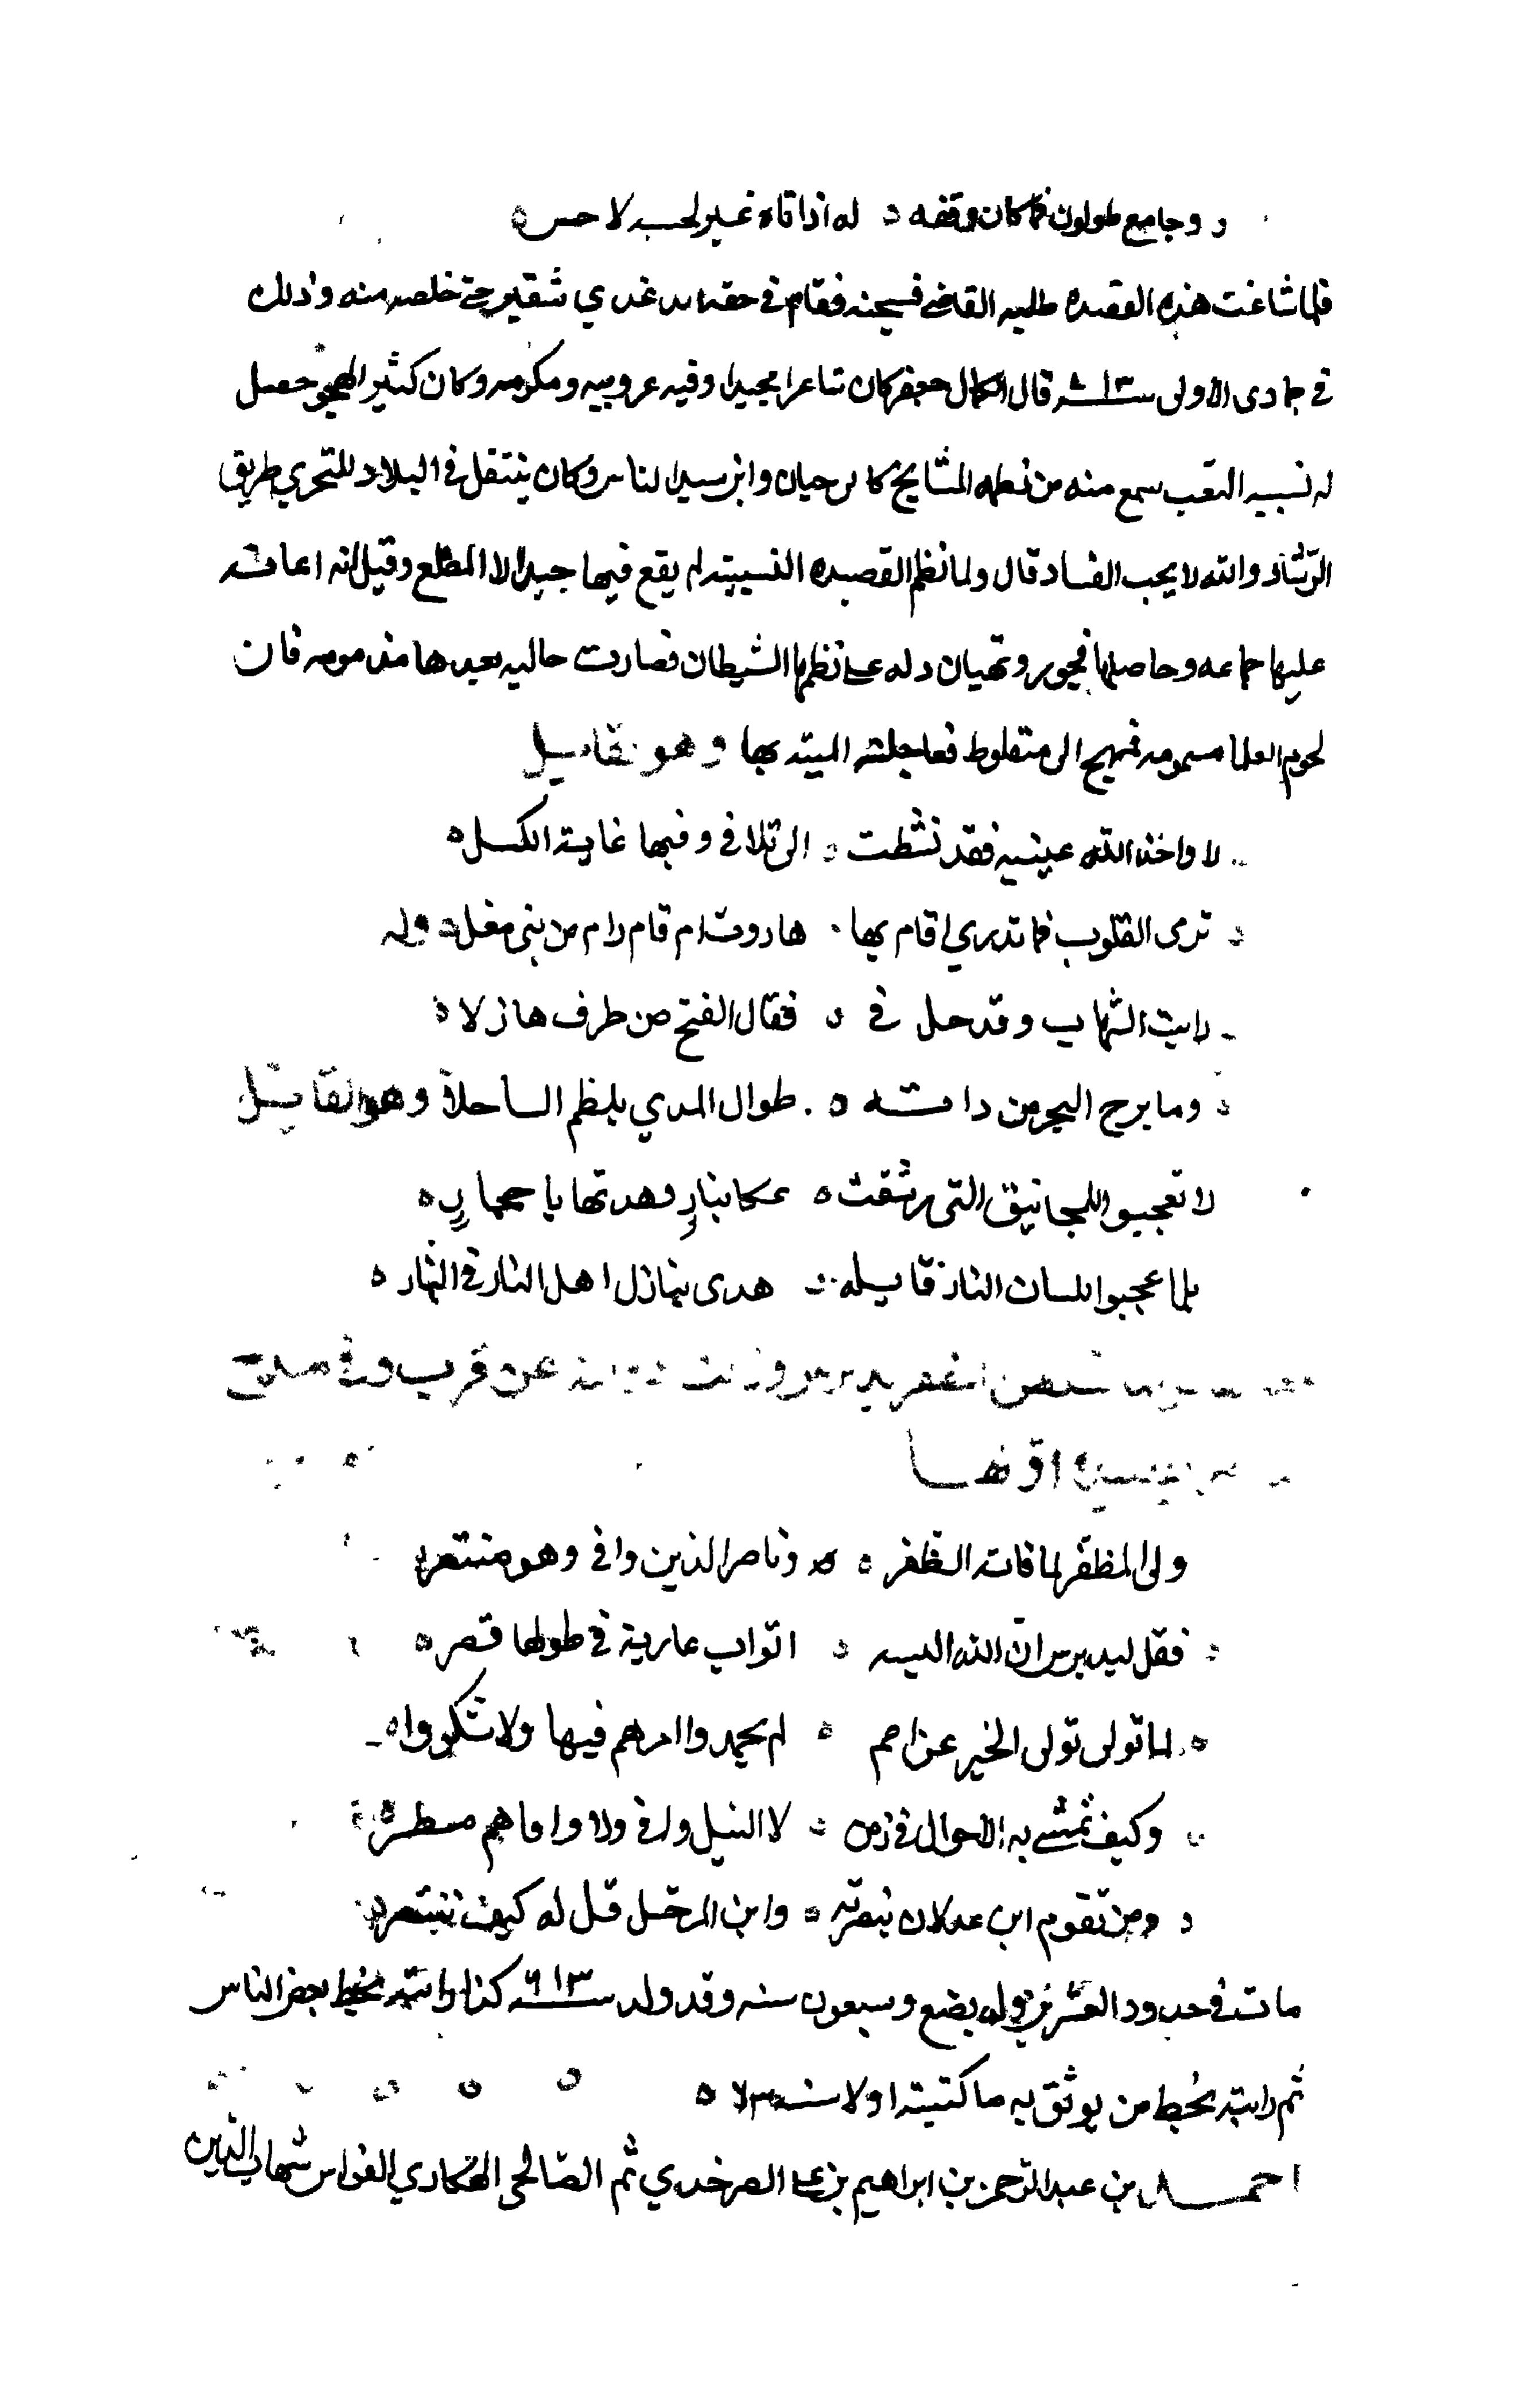 وجامع طولون فما كان وقفه ٥ له اذاقاه غير لحبه لا حس ٥
فلما شاعت هذه القصده طلبه القاضي فسجنه فقام في حقه ايدغدي شقير حتى خلصه منه وذلك
في جمادى الاولى سنة ٨١٣ قال الكمال جعفر كان شاعرا مجيدا وفيه عروبيه ومكرمه وكان كثير الهجو حصل
له نسبيه التعب سمع منه من نظمه المشايخ كابن حيان وابن سيد الناس وكان ينتقل في البلاد للتحري طريق
الرشاد والله لا يحب الفساد قال ولما نظم القصيده النسيبيه لم يقع فيها جيدا الا المطلع وقيل انه اعانه
عليها جماعه وحاصلها فجور وتهيان دله على نظمها الشيطان فصارت حاليه بعدها مذمومه فان
لحوم العلما مسمومه فهيج الى منفلوط فعاجلته المنيه بها وهو القايل
لا واخذ الله عينيه فقد نشطت ٥ الى تلافي وفيها غاية الكسل ٥
ترمى القلوب فما تدري اقام بها ٠ هاروت ام قام رام من بني ثعل ٥ وله
رايت الشهاب وقد حل في ٥ فقال الفتح من طرف هازلا ٥
وما برح البحر من دابه ٥ طوال المدي يلطم الساحلا وهو القايل
لا تعجبوا للمجانيق التي رشقت ٥ عكا بنارٍ وهدتها باحجارٍ ٥
بل اعجبوا للسان النار قايله ٠ هدى منازل اهل النار في النار ٥
عن قريب وفي
اولها
ولى المظفر لما فاته الظفر ٥ وناصر الدين وافى وهو منتصر
فقل لبيبرس ان الله البسه ٥ اثواب عارية في طولها قصر ٥
لما تولى تولى الخير عن امم ٥ لم يحمدوا امرهم فيها ولا شكروا ٥
وكيف تمشي به الاحوال في زمن ٥ لا النيل وافى ولا وافاهم مطر ٥
ومن تقوم ابن عدلان بنصرته ٥ وابن المرحل قل له كيف ينتصر
مات في حدود العشرين وله بضع وسبعون سنه وقد ولد سنة ٦١٣ كذا رايته بخط بعض الناس
ثم رايته بخط من يوثق به ما كتبته اولا سنه
احمد بن عبد الرحمن بن ابراهيم بن علي الصرخدي ثم الصالحي الهكاري القواس شهاب الدين